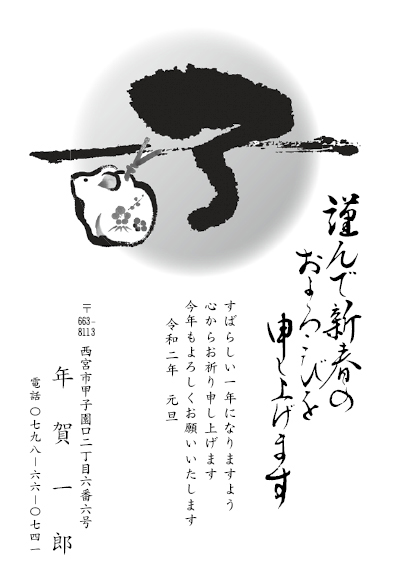 子
謹んで新春の
およろこびを
申し上げます
すばらしい一年になりますよう
心からお祈り申し上げます
今年もよろしくお願いいたします
令和二年　元旦
〒663-8113
西宮市甲子園口二丁目六番六号
年賀一郎
電話〇七九八－六六－〇七四一